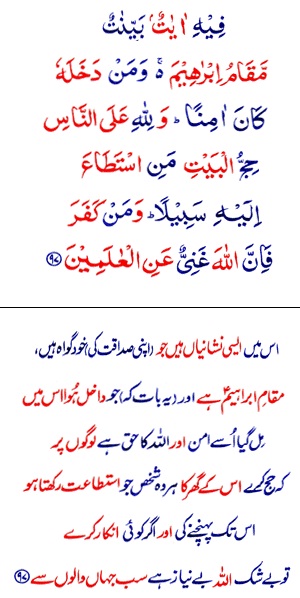 فِيْهِ اٰيٰتٌۢ بَيِّنٰتٌ
مَّقَامُ اِبْرٰهِيْمَ ەۚ وَمَنْ دَخَلَهٗ
كَانَ اٰمِنًا ؕ وَلِلّٰهِ عَلَى النَّاسِ
حِجُّ الْبَيْتِ مَنِ اسْتَطَاعَ
اِلَيْهِ سَبِيْلًا ؕ وَمَنْ كَفَرَ
فَاِنَّ اللّٰهَ غَنِيٌّ عَنِ الْعٰلَمِيْنَ ﴿۹۷﴾
اس میں ایسی نشانیاں ہیں جو (اپنی صداقت کی) خود گواہ ہیں،
مقامِ ابراہیمؑ ہے اور (یہ بات کہ) جو داخل ہُوا اس میں
مِل گیا اُسے امن اور اللہ کا حق ہے لوگوں پر
کہ حج کرے اس کے گھر کا ہر وہ شخص جو استطاعت رکھتا ہو
اس تک پہنچنے کی اور اگر کوئی انکار کرے
تو بے شک اللہ بے نیاز ہے سب جہاں والوں سے ﴿۹۷﴾